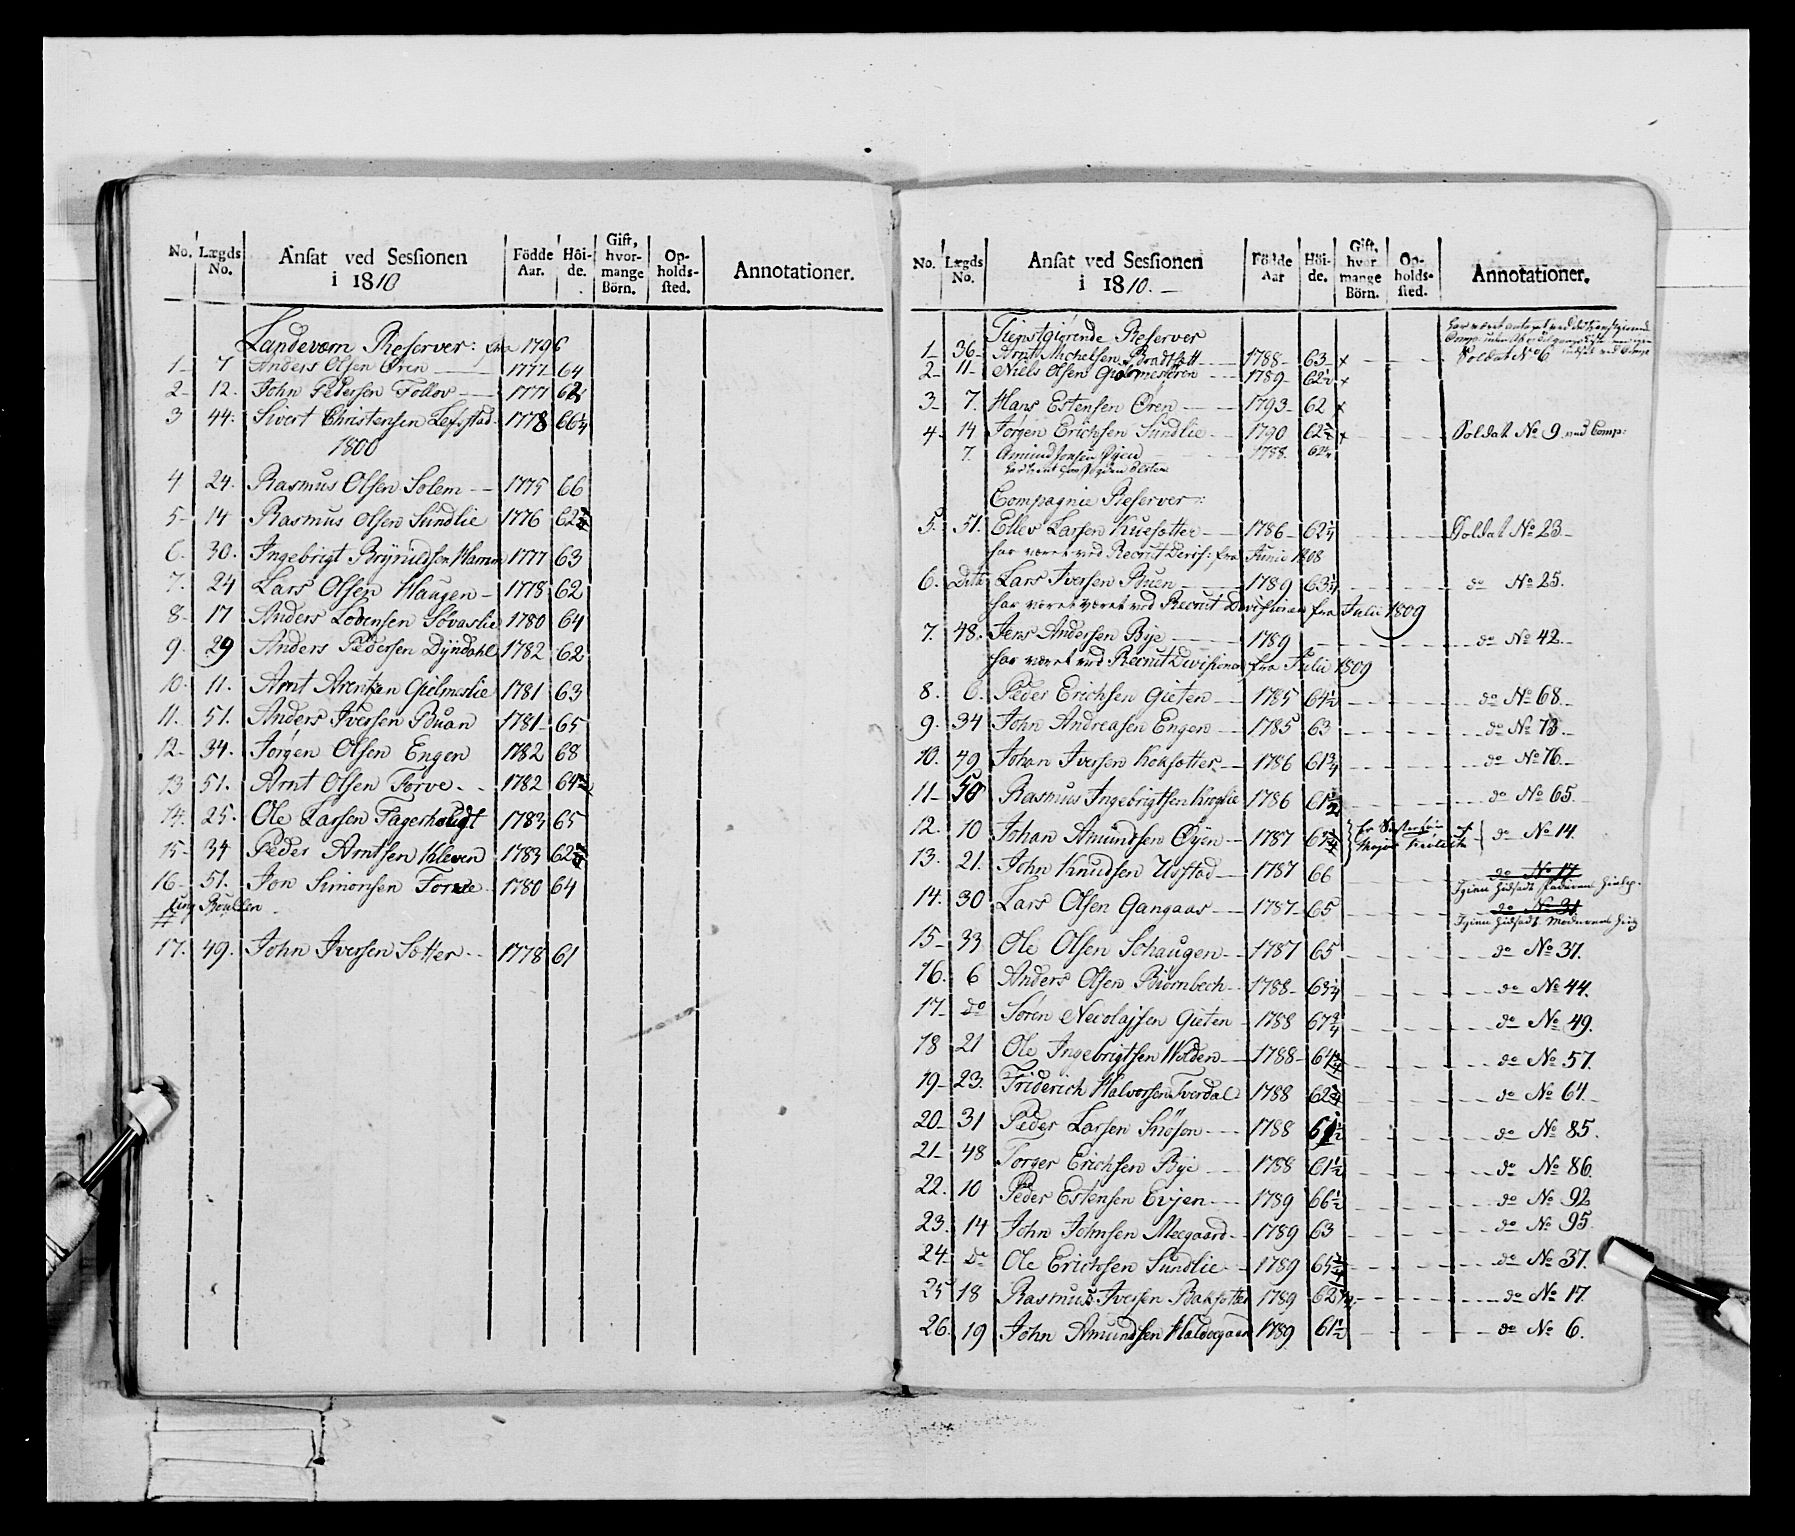 No. Lægds No. Ansat ved Sessionen i 1810 Födde Aar. Höi-de. Gift, hvor-mange Börn. Op-holds-sted. Annotationer.
Landeværn Reserver: fra 1796
1 - 7 Anders Olsen Øren 1777 64
2 - 12. John Pedersen Follov 1777 62
3 44. Sivert Christensen 1778 66 1/4
1800
4 24. Rasmus Olsen Solem 1775 66
5 - 14 Rasmus Olsen Sundlie 1776 62 3/4
6. 30. Ingebrigt 1777 63
7. 24 Lars Olsen Haugen 1778 62
8 - 17 Anders Lodensen Løvaslie 1780 64
9. 29 Anders Pedersen Dÿndahl 1782 62
10. 11. Arnt Arentzen Gielmeslie 1781 63
11. 51. Anders Iversen Buan 1781 65
12 - 34. Jørgen Olsen Engen 1782 68
13 51. Arnt Olsen Forve 1782 64 3/4
14. 25. Ole Larsen Fagerhougt 1783 65
15 - 34 Peder Arntsen Kleven 1783 62 3/4
16 - 51. Jon Simonsen Forve 1780 64
Rullen
17. 49. John Iversen Sotter 1778 61
No. Lægds No. Ansat ved Sessionen i 1810. Födde Aar Höi-de. Gift, hvor mange Börn. Op-holds-sted. Annotationer.
Tienstgiørende Reserver
1 - 36 - Arnt Michelsen Bradsløtt 1788 - 63 - x Soldat No 6
2 - 11 - Niels Olsen Gielmesøren 1789 - 62 1/2 x
3 - 7. Hans Estensen Øren 1793 - 62 x
4 - 14 Jørgen Erichsen Sundlie 1790 62 3/4 x Soldat No 9 ved Comp:
7. Amund Jonsen Øyen 1788. 62 1/4
Compagnie Reserver:
5. 51. Ellev Larsen Kuesøtter 1786 - 62 1/4 Soldat No 23 -
har været ved Recrut Devis: fra Junii 1808
6. Dito Lars Iversen Buen 1789 63 1/4 do No 25.
har været været ved Recrut Devisionen fra Julii 1809
7. 48. Jens Andersen Bye 1789 do No 42 -
har været ved Recrut Devisionen fra Julii 1809
8. 6. Peder Erichsen Gieten 1785 64 1/2 do No 68
9. 34 John Andreasen Engen 1785 63 do No 73 -
10. 49 Johan Iversen Koksøtter 1786 61 3/4 do No 76 -
11 - 50 Rasmus Ingebrigtsen Kroglie 1786 61 1/2 do No 65.
12. 10 Johan Amundsen Øyen 1787 63 1/4 do No 14.
13. 21. John Knudsen Usstad 1787 66 do No 17
14. 30 Lars Olsen Gangaas 1787 - 65 do No 31
15 - 33 Ole Olsen Schaugen 1787 65 do No 37.
16. 6 Anders Olsen Biørnbech 1788 - 63 1/4 do No 44.
17 - do Søren Nicolajsen Gieten 1788 67 3/4 do No 49.
18 21 Ole Ingebrigtsen Wolden 1788 - 64 3/4 do No 57.
19 - 23. Friderich Halvorsen Fverdal 1788 62 3/4 do No 64.
20 - 31 Peder Larsen Snøson 1788 61 1/2 do No 85.
21 - 48 Torger Erichsen Bye 1788 61 1/2 do No 86.
22. 10 Peder Estensen Evjen 1789 66 1/2 do No 92
23. 14 John Johnsen Meegaard 1789 63 do No 95.
24 - do Ole Erichsen Sundlie 1789 65 3/4 do No 37.
25 18 Rasmus Iversen Baksøtter 1789 62 1/4 do No 17.
26. 19 John Amundsen Haldoegaard 1789 61 1/2 do No 6.